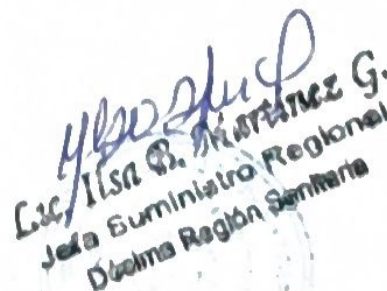 Lic. Ilsa B. Martinez G.
Jefa Suministro Regional
Décima Región Sanitaria